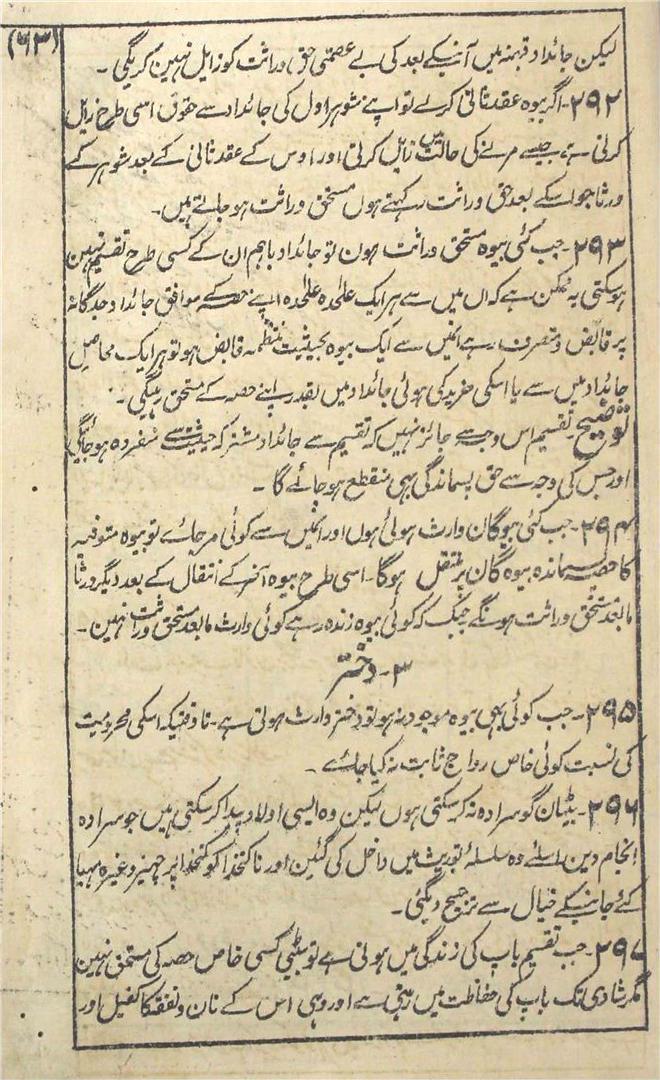 (۶۳)
لیکن جائداد قبضہ میں آنیکے بعد کی بے عصمتی حق وراثت کو زایل نہین کریگی ۔
۲۹۲۔ اگر بیوہ عقد ثانی کرلے تو اپنے شوہر اول کی جائداد سے حقوق اسی طرح زایل
کرتی ہے جیسے مرنے کی حالت میں زایل کرتی اور اوس کے عقد ثانی کے بعد شوہر کے
ورثا جو اسکے بعد حق وراثت رکہتے ہوں مستحق وراثت ہو جاتے ہیں۔
۲۹۳۔ جب کئی بیوہ مستحق وراثت ہون تو جائداد باہم ان کے کسی طرح تقسیم نہین
ہو سکتی یہ ممکن ہے کہ اں میں سے ہر ایک علٰحدہ علٰحدہ اپنے حصہ کے موافق جائداد جدگانہ
پر قابض و متصرف رہے انمیں سے ایک بیوہ بحیثیت منتظمہ قابض ہو تو ہر ایک محاصل
جائداد میں سے یا اسکی خرید کی ہوئی جائداد میں بقدر اپنے حصہ کے مستحق رہیگی ۔
توضیح۔ تقسیم اس وجہ سے جائز نہیں کہ تقسیم سے جائداد مشترکہ حیثیت سے منفردہ ہو جائیگی
اور جس کی وجہ سے حق پسماندگی بہی منقطع ہو جائے گا ۔
۲۹۴۔ جب کئی بیوگان وارث ہوئی ہوں اور انمیں سے کوئی مر جاے تو بیوہ متوفیہ
کا حصہ پسماندہ بیوہ گان پر منتقل ہوگا۔ اسی طرح بیوہ آخر کے انتقال کے بعد دیگر ورثا
مابعد مستحق وراثت ہونگے جبتک کہ کوئی بیوہ زندہ رہے کوئی وارث مابعد مستحق وراثت نہین ۔
۳۔ دختر
۲۹۵۔ جب کوئی بہی بیوہ موجود نہ ہو تو دختر وارث ہوتی ہے ۔ تاوقتیکہ اسکی محرومیت
کی نسبت کوئی خاص رواج ثابت نہ کیا جاے ۔
۲۹۶۔ بیٹیان گو سرادہ نہ کر سکتی ہوں لیکن وہ ایسی اولاد پیدا کر سکتی ہیں جو سرادہ
انجام دین اسلئے وہ سلسلۂ توریث میں داخل کی گئین اور ناکتخدا کو کتخدا پر جہیز وغیرہ مہیا
کئے جانیکے خیال سے ترجیح دیگئی ۔
۲۹۷۔ جب تقسیم باپ کی زندگی میں ہوتی ہے تو بیٹی کسی خاص حصہ کی مستحق نہین
مگر شادی تک باپ کی حفاظت میں رہتی ہے اور وہی اس کے نان و نفقہ کا کفیل اور